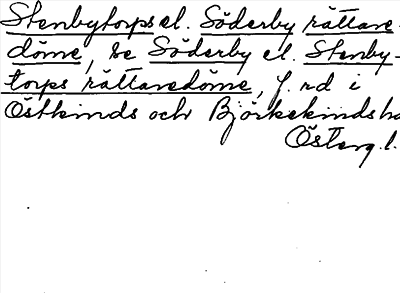 Stenbytorps el. Söderby rättare-
döme, se Söderby el. Stenby-
torps rättaredöme, f. rd i
Östkinds och Björkekinds ha
Österg.l.